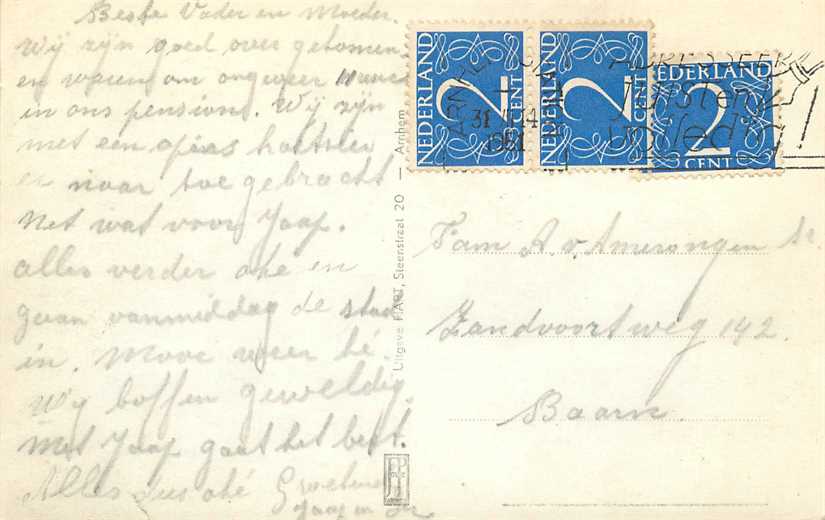 Beste Vader en Moeder.
Wij zijn goed over gekomen
en waren om ongeveer 11 uur
in ons pension. Wij zijn
met een
er naar toe gebracht
net wat voor Jaap.
alles verder oké en
gaan vanmiddag de stad
in. Mooi weer hè.
Wij boffen geweldig.
Met Jaap gaat het best.
Alles dus oké Groetend
Jaap en
Uitgave HART, Steenstraat 20 — Arnhem
NEDERLAND 2 CENT
NEDERLAND 2 CENT
NEDERLAND 2 CENT
ARNHEM
31
1951
Fam A. v. Amerongen Sr.
Zandvoortweg 142.
Baarn.